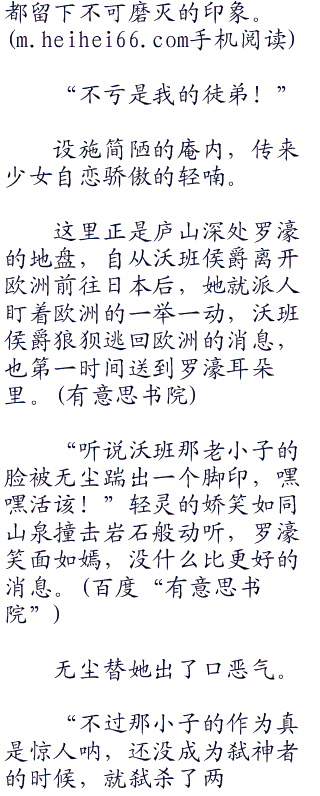 都留下不可磨灭的印象。
(m.heihei66.com手机阅读)
“不亏是我的徒弟！”
设施简陋的庵内，传来
少女自恋骄傲的轻喃。
这里正是庐山深处罗濠
的地盘，自从沃班侯爵离开
欧洲前往日本后，她就派人
盯着欧洲的一举一动，沃班
侯爵狼狈逃回欧洲的消息，
也第一时间送到罗濠耳朵
里。(有意思书院)
“听说沃班那老小子的
脸被无尘踹出一个脚印，嘿
嘿活该！”轻灵的娇笑如同
山泉撞击岩石般动听，罗濠
笑面如嫣，没什么比更好的
消息。(百度“有意思书
院”)
无尘替她出了口恶气。
“不过那小子的作为真
是惊人呐，还没成为弑神者
的时候，就弑杀了两